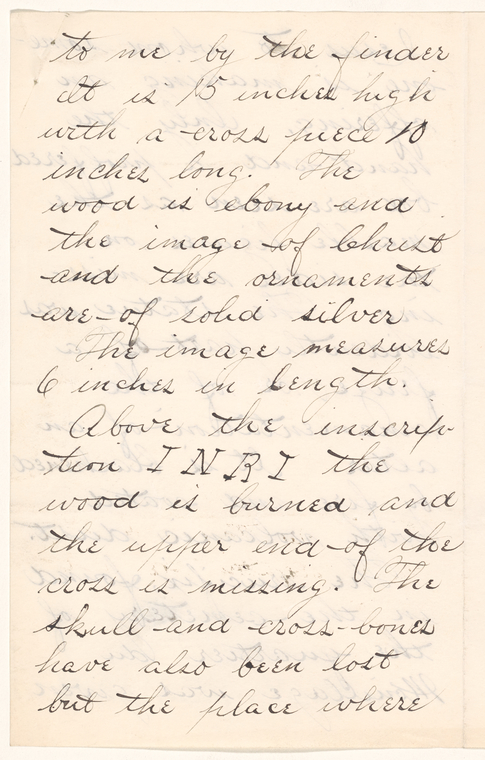 to me by the finder
It is 15 inches high
with a cross piece 10
inches long. The
wood is ebony and
the image of Christ
and the ornaments
are of solid silver
The image measures
6 inches in length.
Above the inscrip-
tion I N R I the
wood is burned and
the upper end of the
cross is missing. The
skull and cross-bones
have also been lost
but the place where